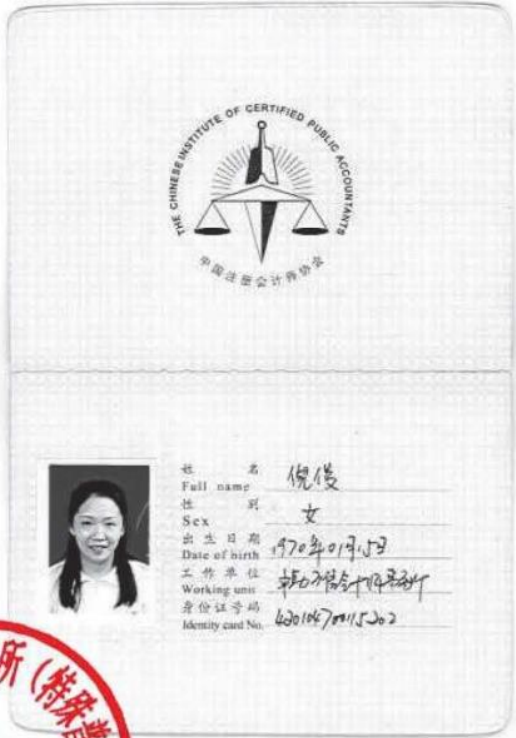 THE CHINESE INSTITUTE OF CERTIFIED PUBLIC ACCOUNTANTS
中国注册会计师协会
姓 名
Full name 倪俊
性 别
Sex 女
出生日期
Date of birth 1970年01月15日
工作单位
Working unit
身份证号码
Identity card No. 420104700115202
所(特殊普